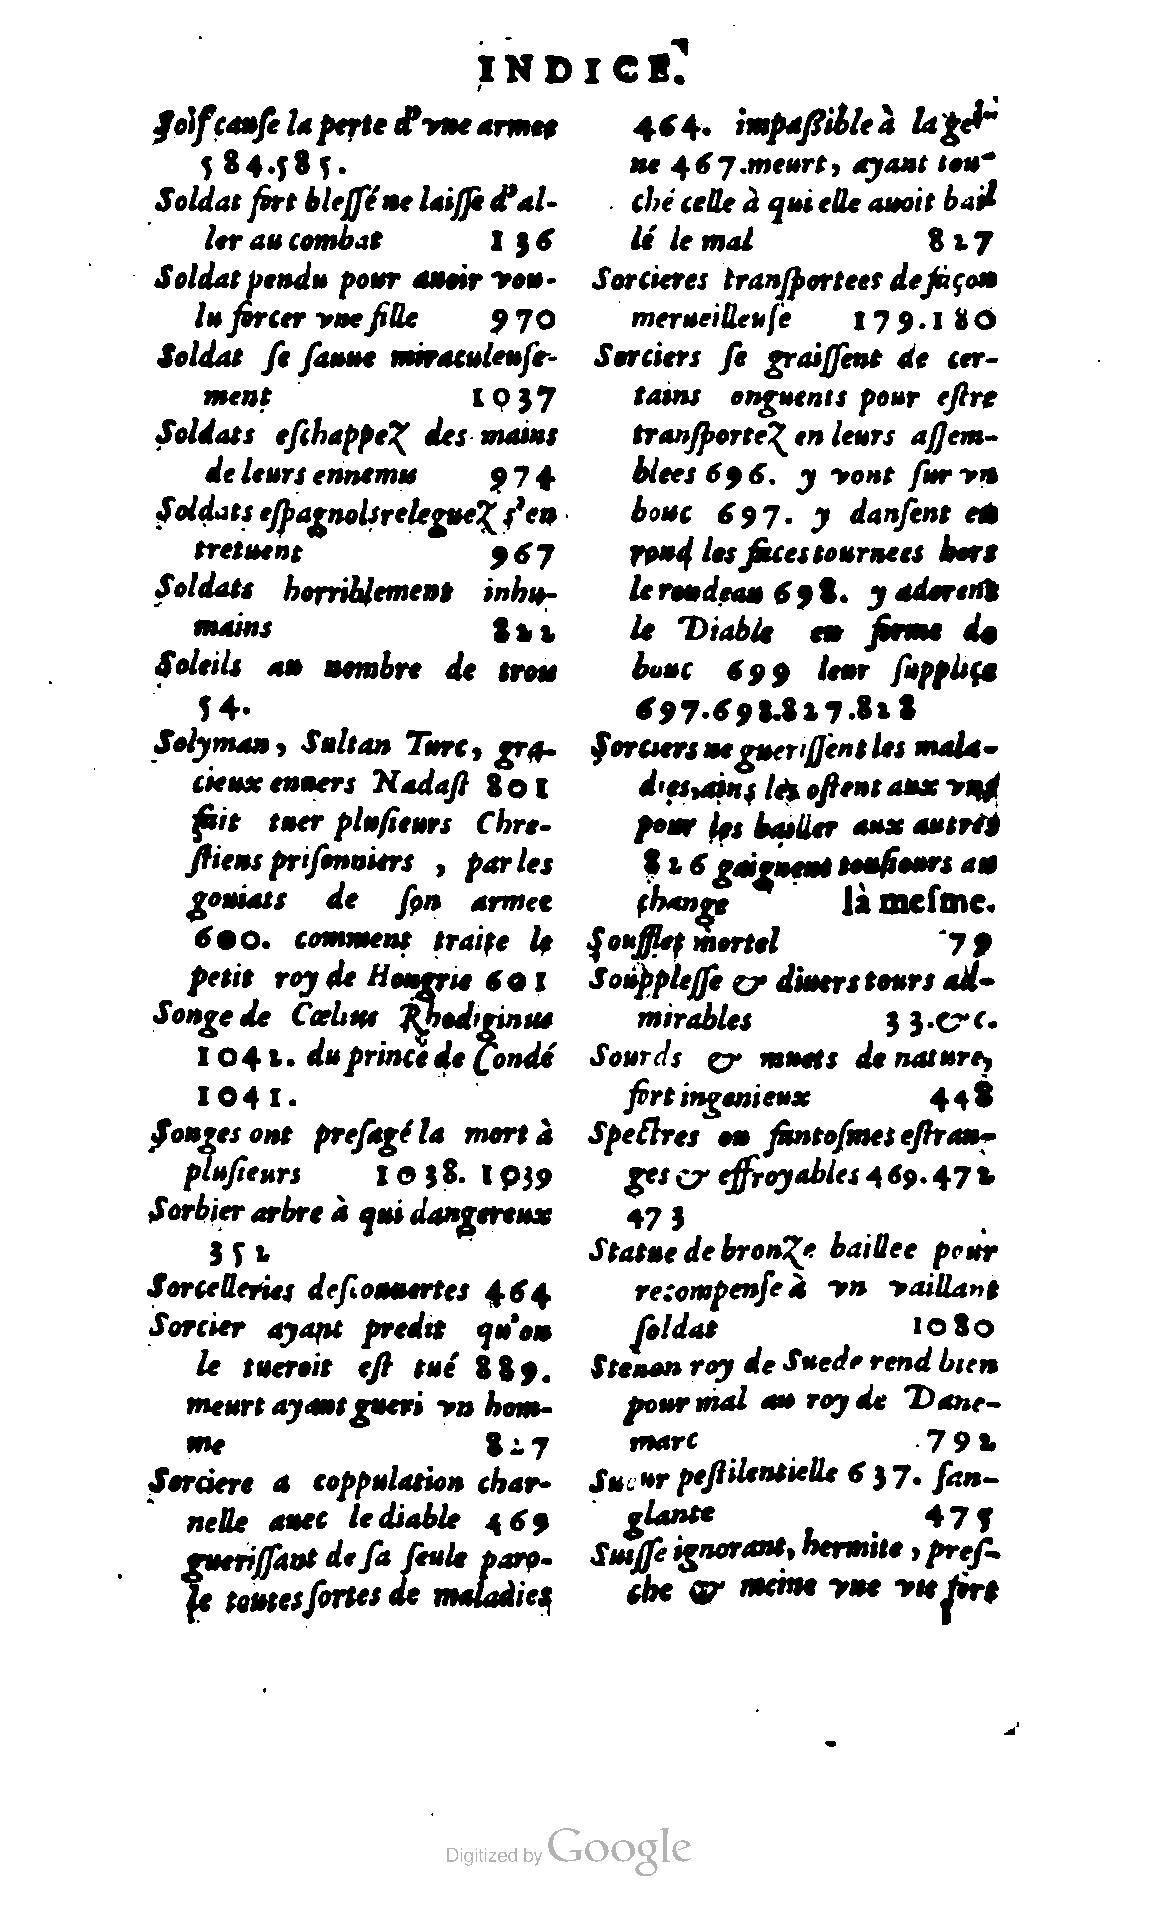 INDICE.
Soif cause la perte d'vne armee
584.585.
Soldat fort blessé ne laisse d'al-
ler au combat 136
Soldat pendu pour auoir vou-
lu forcer vne fille 970
Soldat se sauue miraculeuse-
ment 1037
Soldats eschappez des mains
de leurs ennemis 974
Soldats espagnols releguez s'en
tretuent 967
Soldats horriblement inhu-
mains 822
Soleils au nombre de trois
54.
Solyman, Sultan Turc, gra-
cieux enuers Nadast 801
fait tuer plusieurs Chre-
stiens prisonniers, par les
gouiats de son armee
600. comment traite le
petit roy de Hongrie 601
Songe de Cœlius Rhodiginus
1042. du prince de Condé
1041.
Songes ont presagé la mort à
plusieurs 1038. 1039
Sorbier arbre à qui dangereux
352
Sorcelleries descouuertes 464
Sorcier ayant predit qu'on
le tueroit est tué 889.
meurt ayant gueri vn hom-
me 827
Sorciere a coppulation char-
nelle auec le diable 469
guerissant de sa seule paro-
le toutes sortes de maladies
464. impassible à la gehen-
ne 467. meurt, ayant tou-
ché celle à qui elle auoit bail
lé le mal 827
Sorcieres transportees de façon
merueilleuse 179.180
Sorciers se graissent de cer-
tains onguents pour estre
transportez en leurs assem-
blees 696. y vont sur vn
bouc 697. y dansent en
rond les faces tournees hors
le rondeau 698. y adorent
le Diable en forme de
bouc 699 leur supplice
697.698.827.828
Sorciers ne guerissent les mala-
dies, ains les ostent aux vns
pour les bailler aux autres
826 gaignent tousiours au
change là mesme.
Soufflet mortel 79
Souppplesse & diuers tours ad-
mirables 33.&c.
Sourds & muets de nature,
fort ingenieux 448
Spectres ou fantosmes estran-
ges & effroyables 469.472
473
Statue de bronze baillee pour
recompense à vn vaillant
soldat 1080
Stenon roy de Suede rend bien
pour mal au roy de Dane-
marc 792
Sueur pestilentielle 637. san-
glante 475
Suisse ignorant, hermite, pres-
che & meine vne vie fort
Digitized by Google